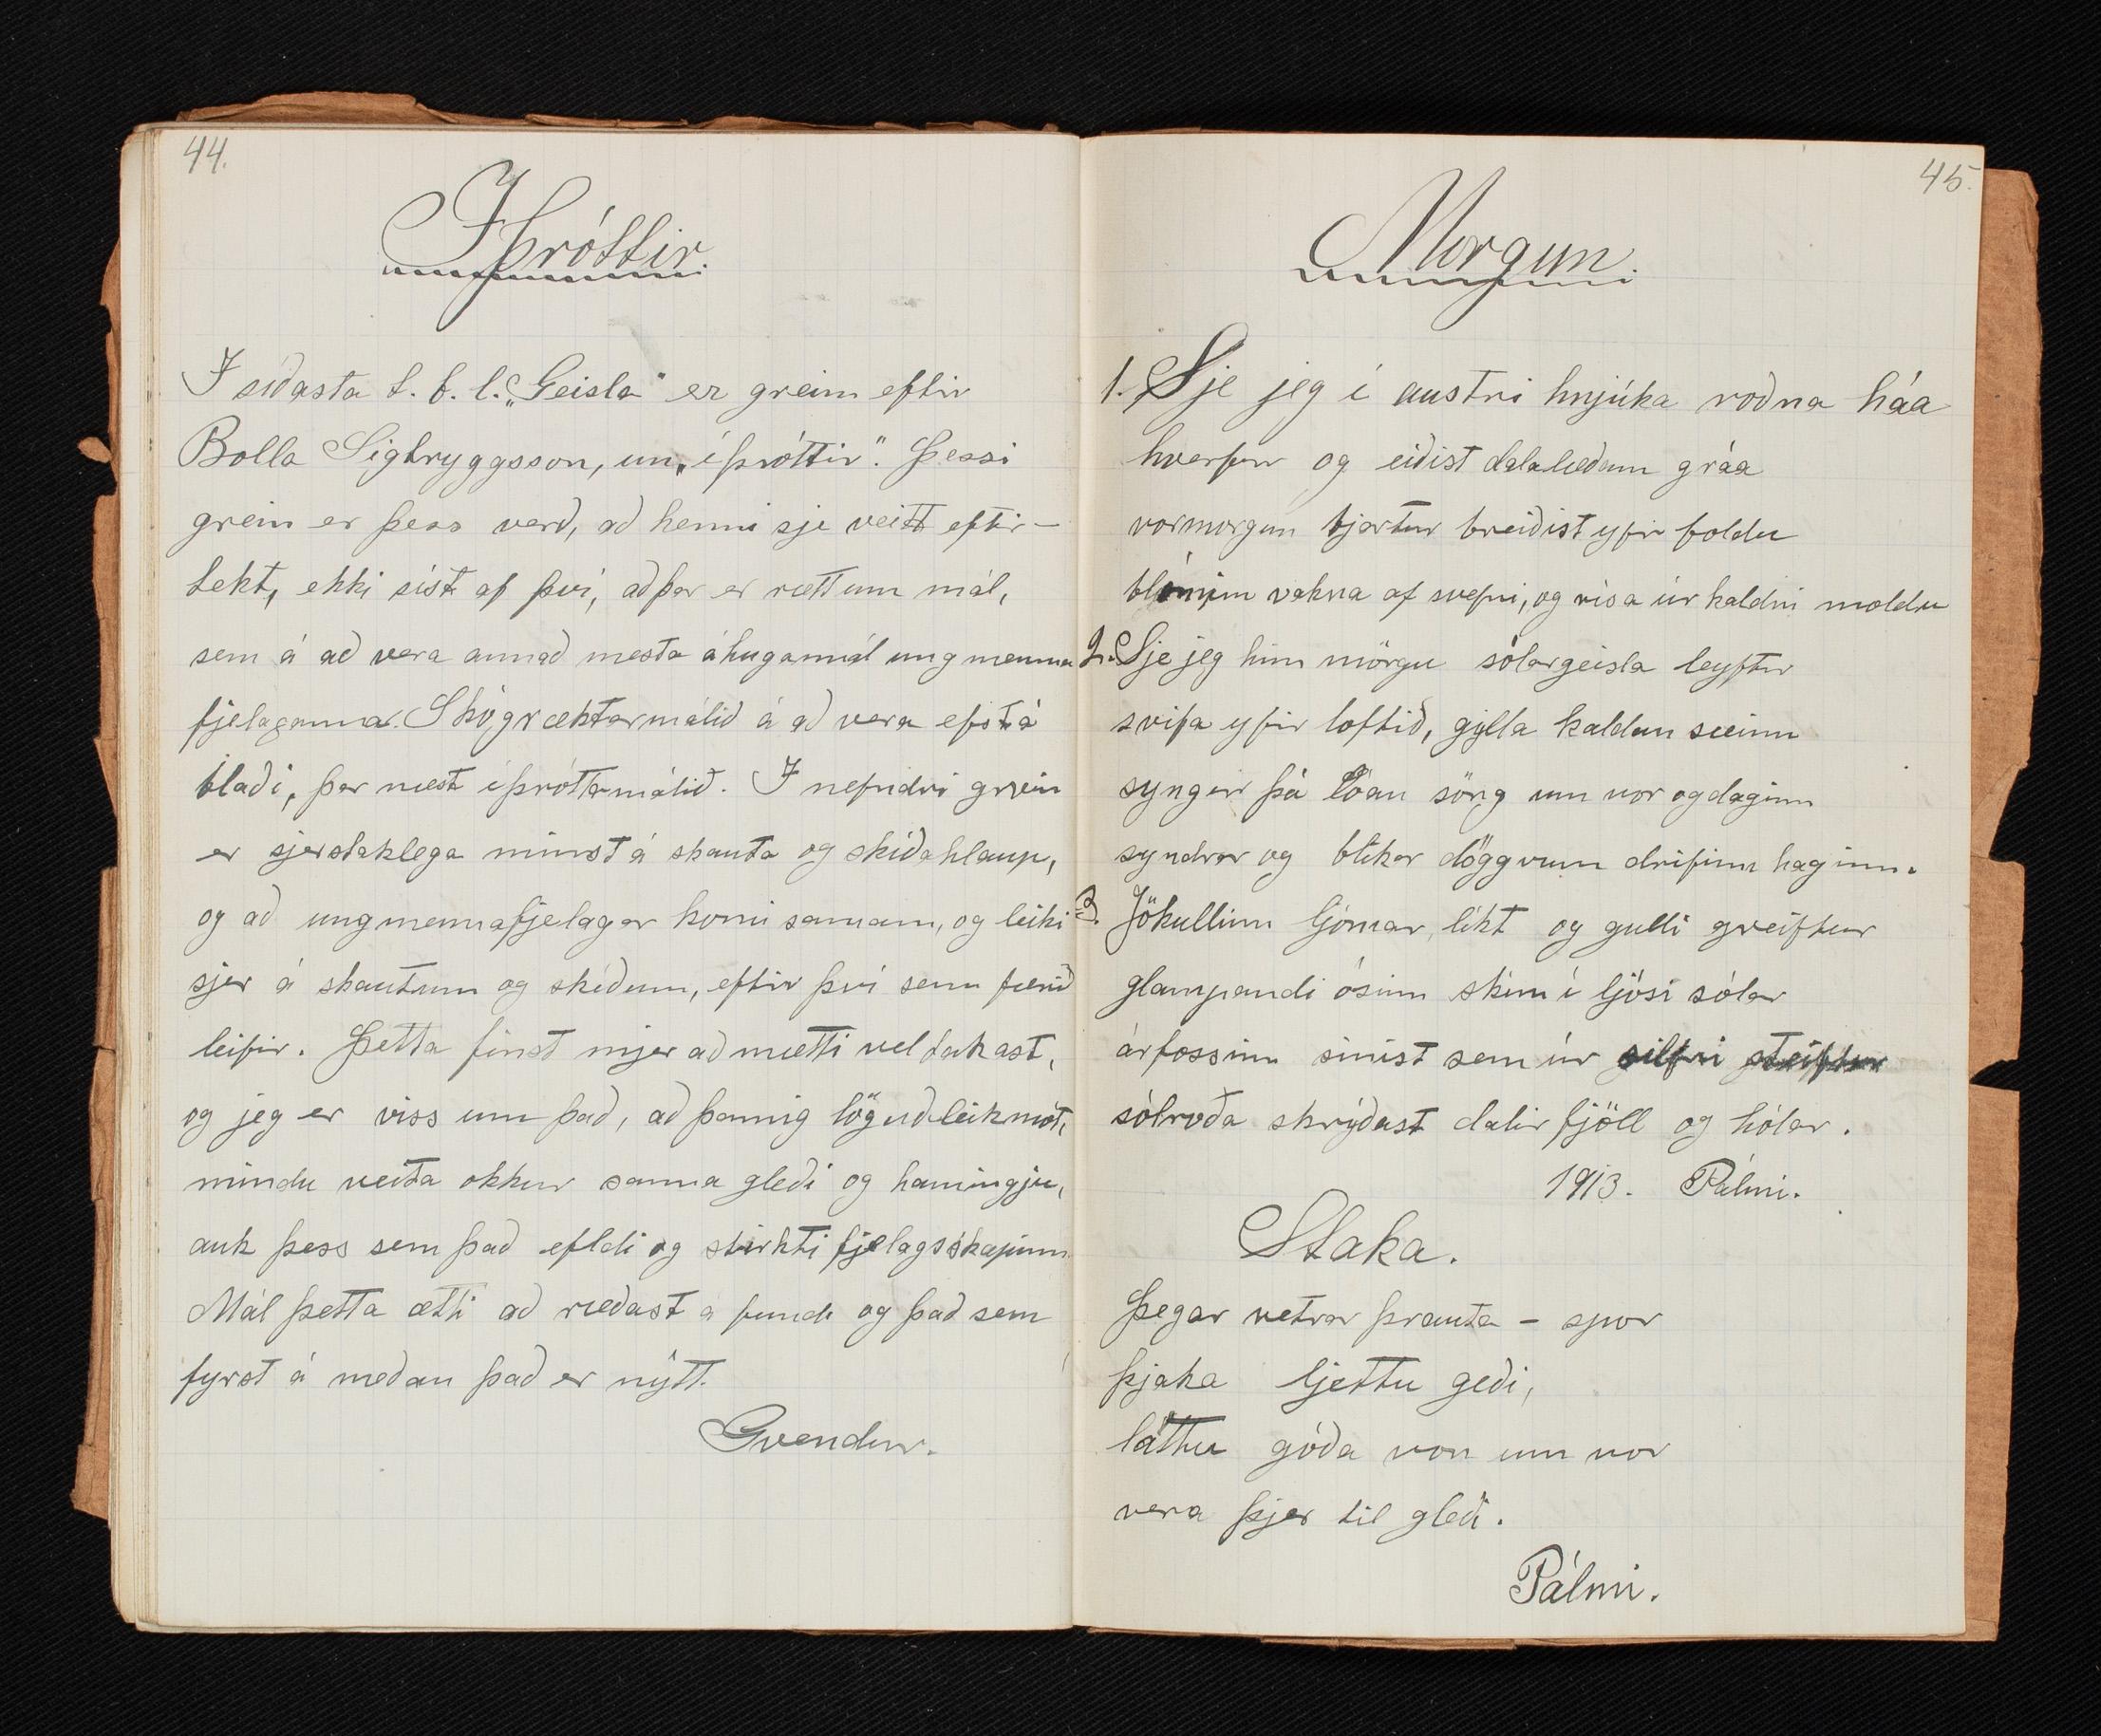 44.
Íþróttir.
Í síðasta t. b. l. „Geisla“ er grein eftir
Bolla Sigtryggsson, um „íþróttir“. Þessi
grein er þess verð, að henni sje veitt eftir-
tekt, ekki síst af því, að þar er rætt um mál,
sem á að vera annað mesta áhugamál ungmenna
fjelaganna. Skógræktarmálið á að vera efst á
blaði, þar næst íþróttamálið. Í nefndri grein
er sjerstaklega minst á skauta og skíðahlaup,
og að ungmennafjelagar komi saman, og leiki
sjer á skautum og skíðum, eftir því sem færið
leifir. Þetta finst mjer að mætti vel takast,
og jeg er viss um það, að þannig löguð leikmót,
mindu veita okkur sanna gleði og hamingju,
auk þess sem það efldi og stirkti fjelagsskapinn.
Mál þetta ætti að ræðast á fundi og það sem
fyrst á meðan það er nýtt.
Gvendur.
45.
Morgun.
1. Sje jeg í austri hnjúka roðna háa
hverfur og eiðist dalalæðan gráa
vormorgun bjartur breiðist yfir foldu
blómin vakna af svefni, og rísa úr kaldri moldu
2. Sje jeg hin mörgu sólargeisla leyftur
svifa yfir loftið, gylla kaldan sæinn
syngur þá lóan söng um vor og daginn
syndrar og blikar döggvum drifinn haginn.
3. Jökullinn ljómar, líkt og gulli greiftur
glampandi ósinn skín í ljósi sólar
árfossinn sínist sem úr silfri steiftur
sólroða skrýðast dalir fjöll og hólar.
1913. Pálmi.
Staka.
Þegar vetrar þrauta - spor
þjaka ljettu geði,
láttu góða von um vor
vera þjer til gleði.
Pálmi.